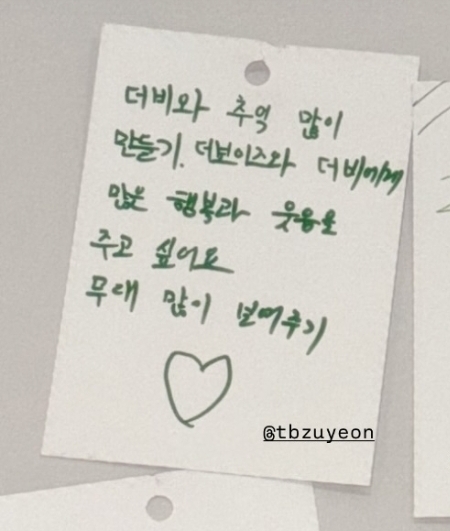 더비와 추억 많이
만들기. 더보이즈와 더비에게
많은 행복과 웃음을
주고 싶어요
무대 많이 보여주기
@tbzuyeon